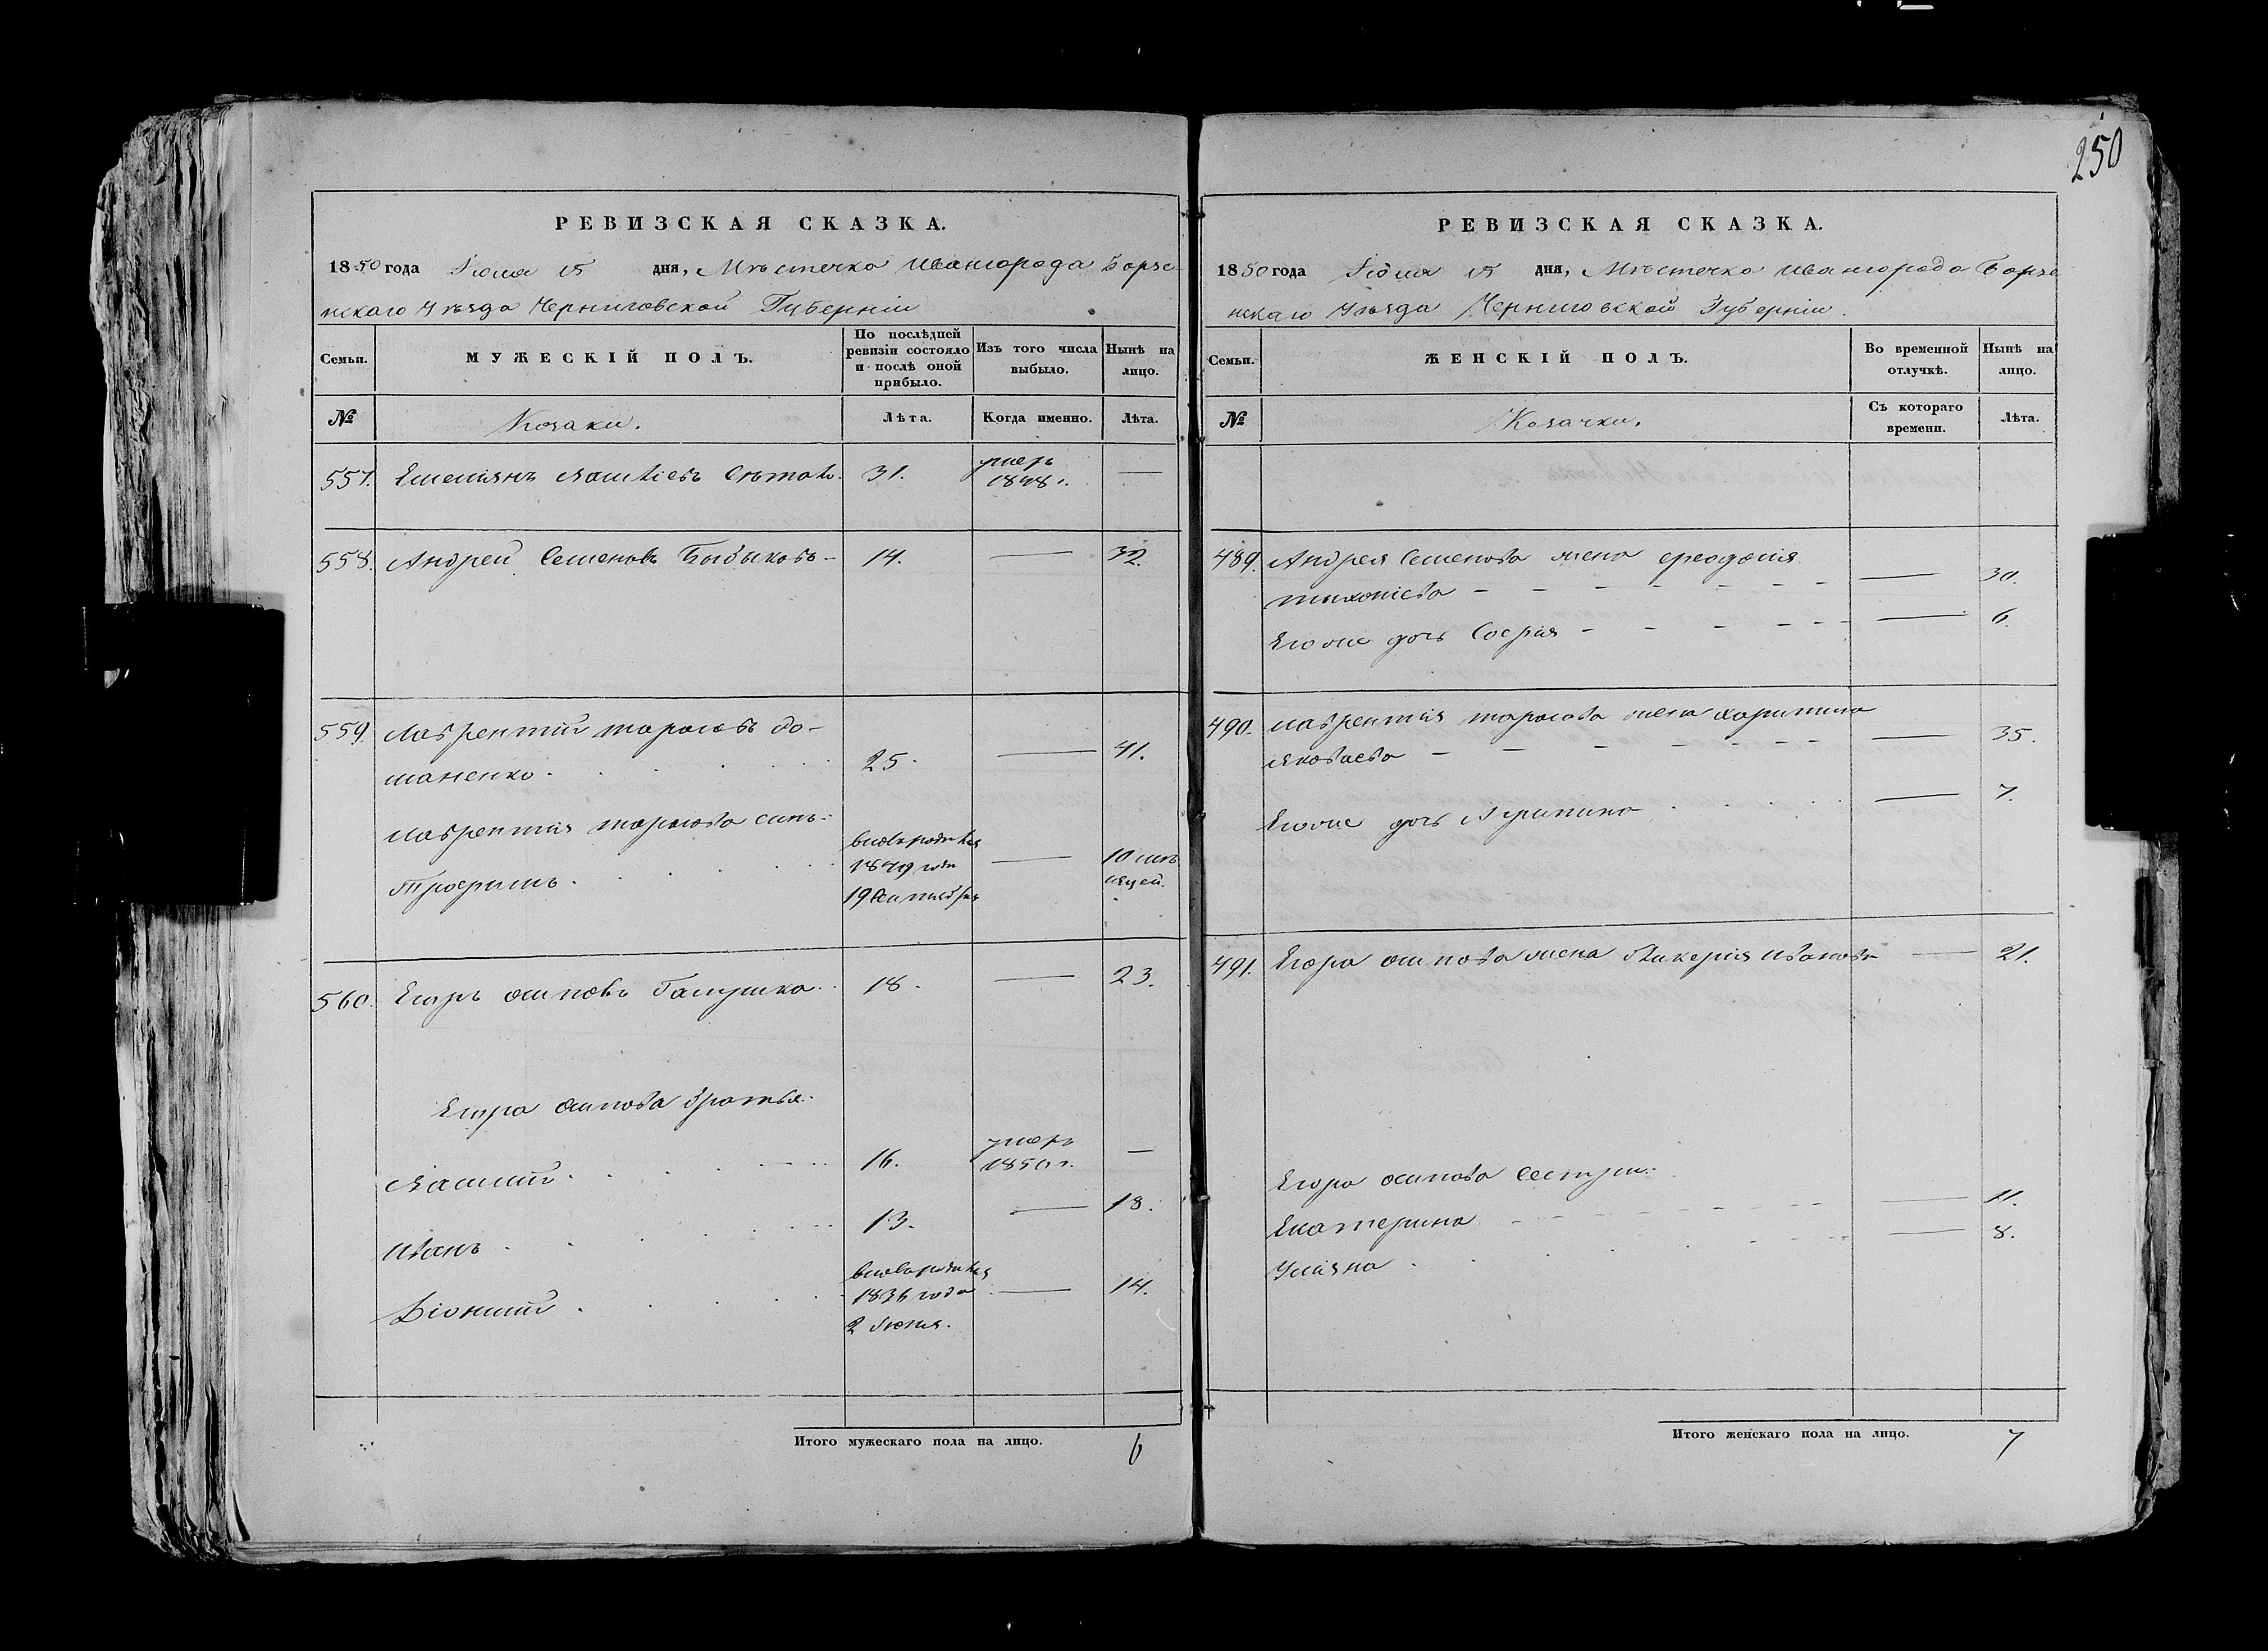 250
РЕВИЗСКАЯ СКАЗКА.
1850 года Іюля 15 дня, Мѣстечка Ивангорода Борзе-
нскаго Уѣзда Черниговской Губерніи
Семьи.
МУЖЕСКІЙ ПОЛЪ.
По послѣдней ревизіи состояло и послѣ оной прибыло.
Изъ того числа выбыло.
Нынѣ на лицо.
№
Козаки.
Лѣта.
Когда именно.
Лѣта.
557. Емеліянъ 31. умеръ 1848 г. —
558. Андрей Семеновъ — 14. — 32.
559. Лаврентій Тарасовъ До-
маненко 25. — 41.
Лаврентія Тарасова сынъ
Трофимъ вновь рожден 1849 года 19 Сентября — 10 мѣсяцей.
560. Егоръ Осиповъ Галушка 18. — 23.
Егора Осипова братья
16. умеръ 1850 г. —
Иванъ 13. — 18.
Діонисій 1836 года 2 Іюня. — 14.
Итого мужескаго пола на лицо. 6
РЕВИЗСКАЯ СКАЗКА.
1850 года Іюля 15 дня, Мѣстечка Ивангорода Борзе
нскаго Уѣзда Черниговской Губерніи.
Семьи.
ЖЕНСКІЙ ПОЛЪ.
Во временной отлучкѣ.
Нынѣ на лицо.
№
Козачки.
Съ котораго времени.
Лѣта.
489. Андрея Семенова жена Феодосія
— 30.
Егоже дочь Софія — 6.
490. Лаврентія Тарасова жена Харитина
Яковлева — 35.
Егоже дочь — 7.
491. Егора Осипова жена Гликерія Иванова — 21.
Егора Осипова сестры
Екатерина — 11.
Уліяна — 8.
Итого женскаго пола на лицо. 7